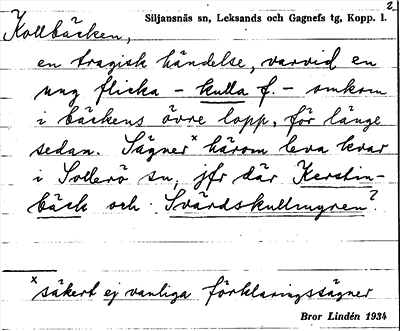 2
Siljansnäs sn, Leksands och Gagnefs tg, Kopp. l.
Kollbäcken,
en tragisk händelse, varvid en
ung flicka - kulla f. - omkom
i bäckens övre lopp, för länge
sedan. Sägner x härom leva kvar
i Sollerö sn, jfr där Kerstin-
bäck och Svärdskullmyren?
x säkert ej vanliga förklaringssägner
Bror Lindén 1934